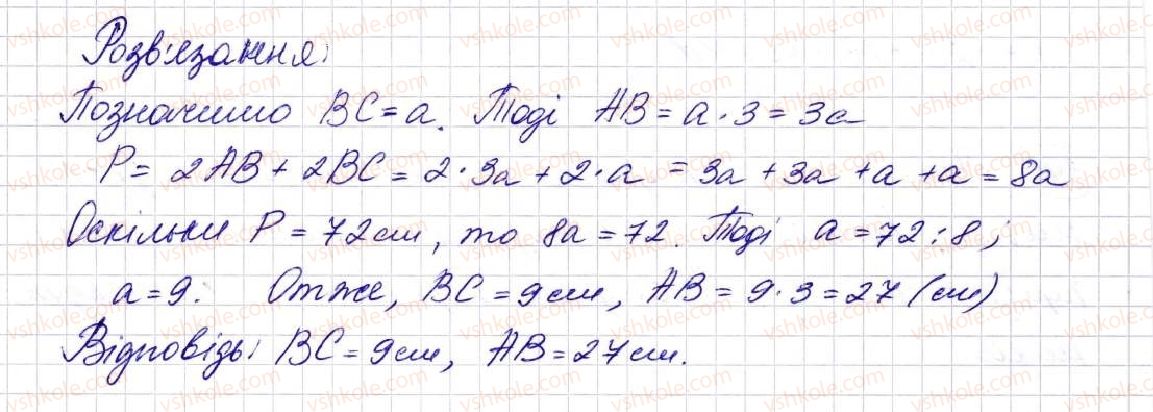 Розв'язання:
Позначимо BC = a. Тоді AB = a · 3 = 3a
P = 2AB + 2BC = 2 · 3a + 2 · a = 3a + 3a + a + a = 8a
Оскільки P = 72 см, то 8a = 72. Тоді a = 72 : 8;
a = 9. Отже, BC = 9 см, AB = 9 · 3 = 27 (см)
Відповідь: BC = 9 см, AB = 27 см.